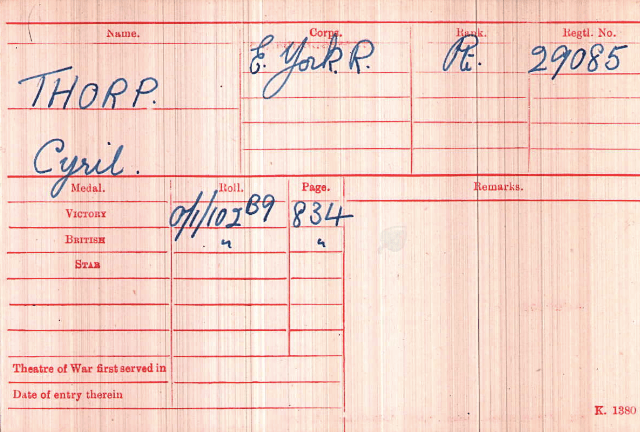 Name. Corps. Rank. Regtl. No.
THORP. E. York. R. Pte. 29085
Cyril.
Medal. Roll. Page. Remarks.
VICTORY O/1/102 B9 834
BRITISH " "
STAR
Theatre of War first served in
Date of entry therein
K. 1380